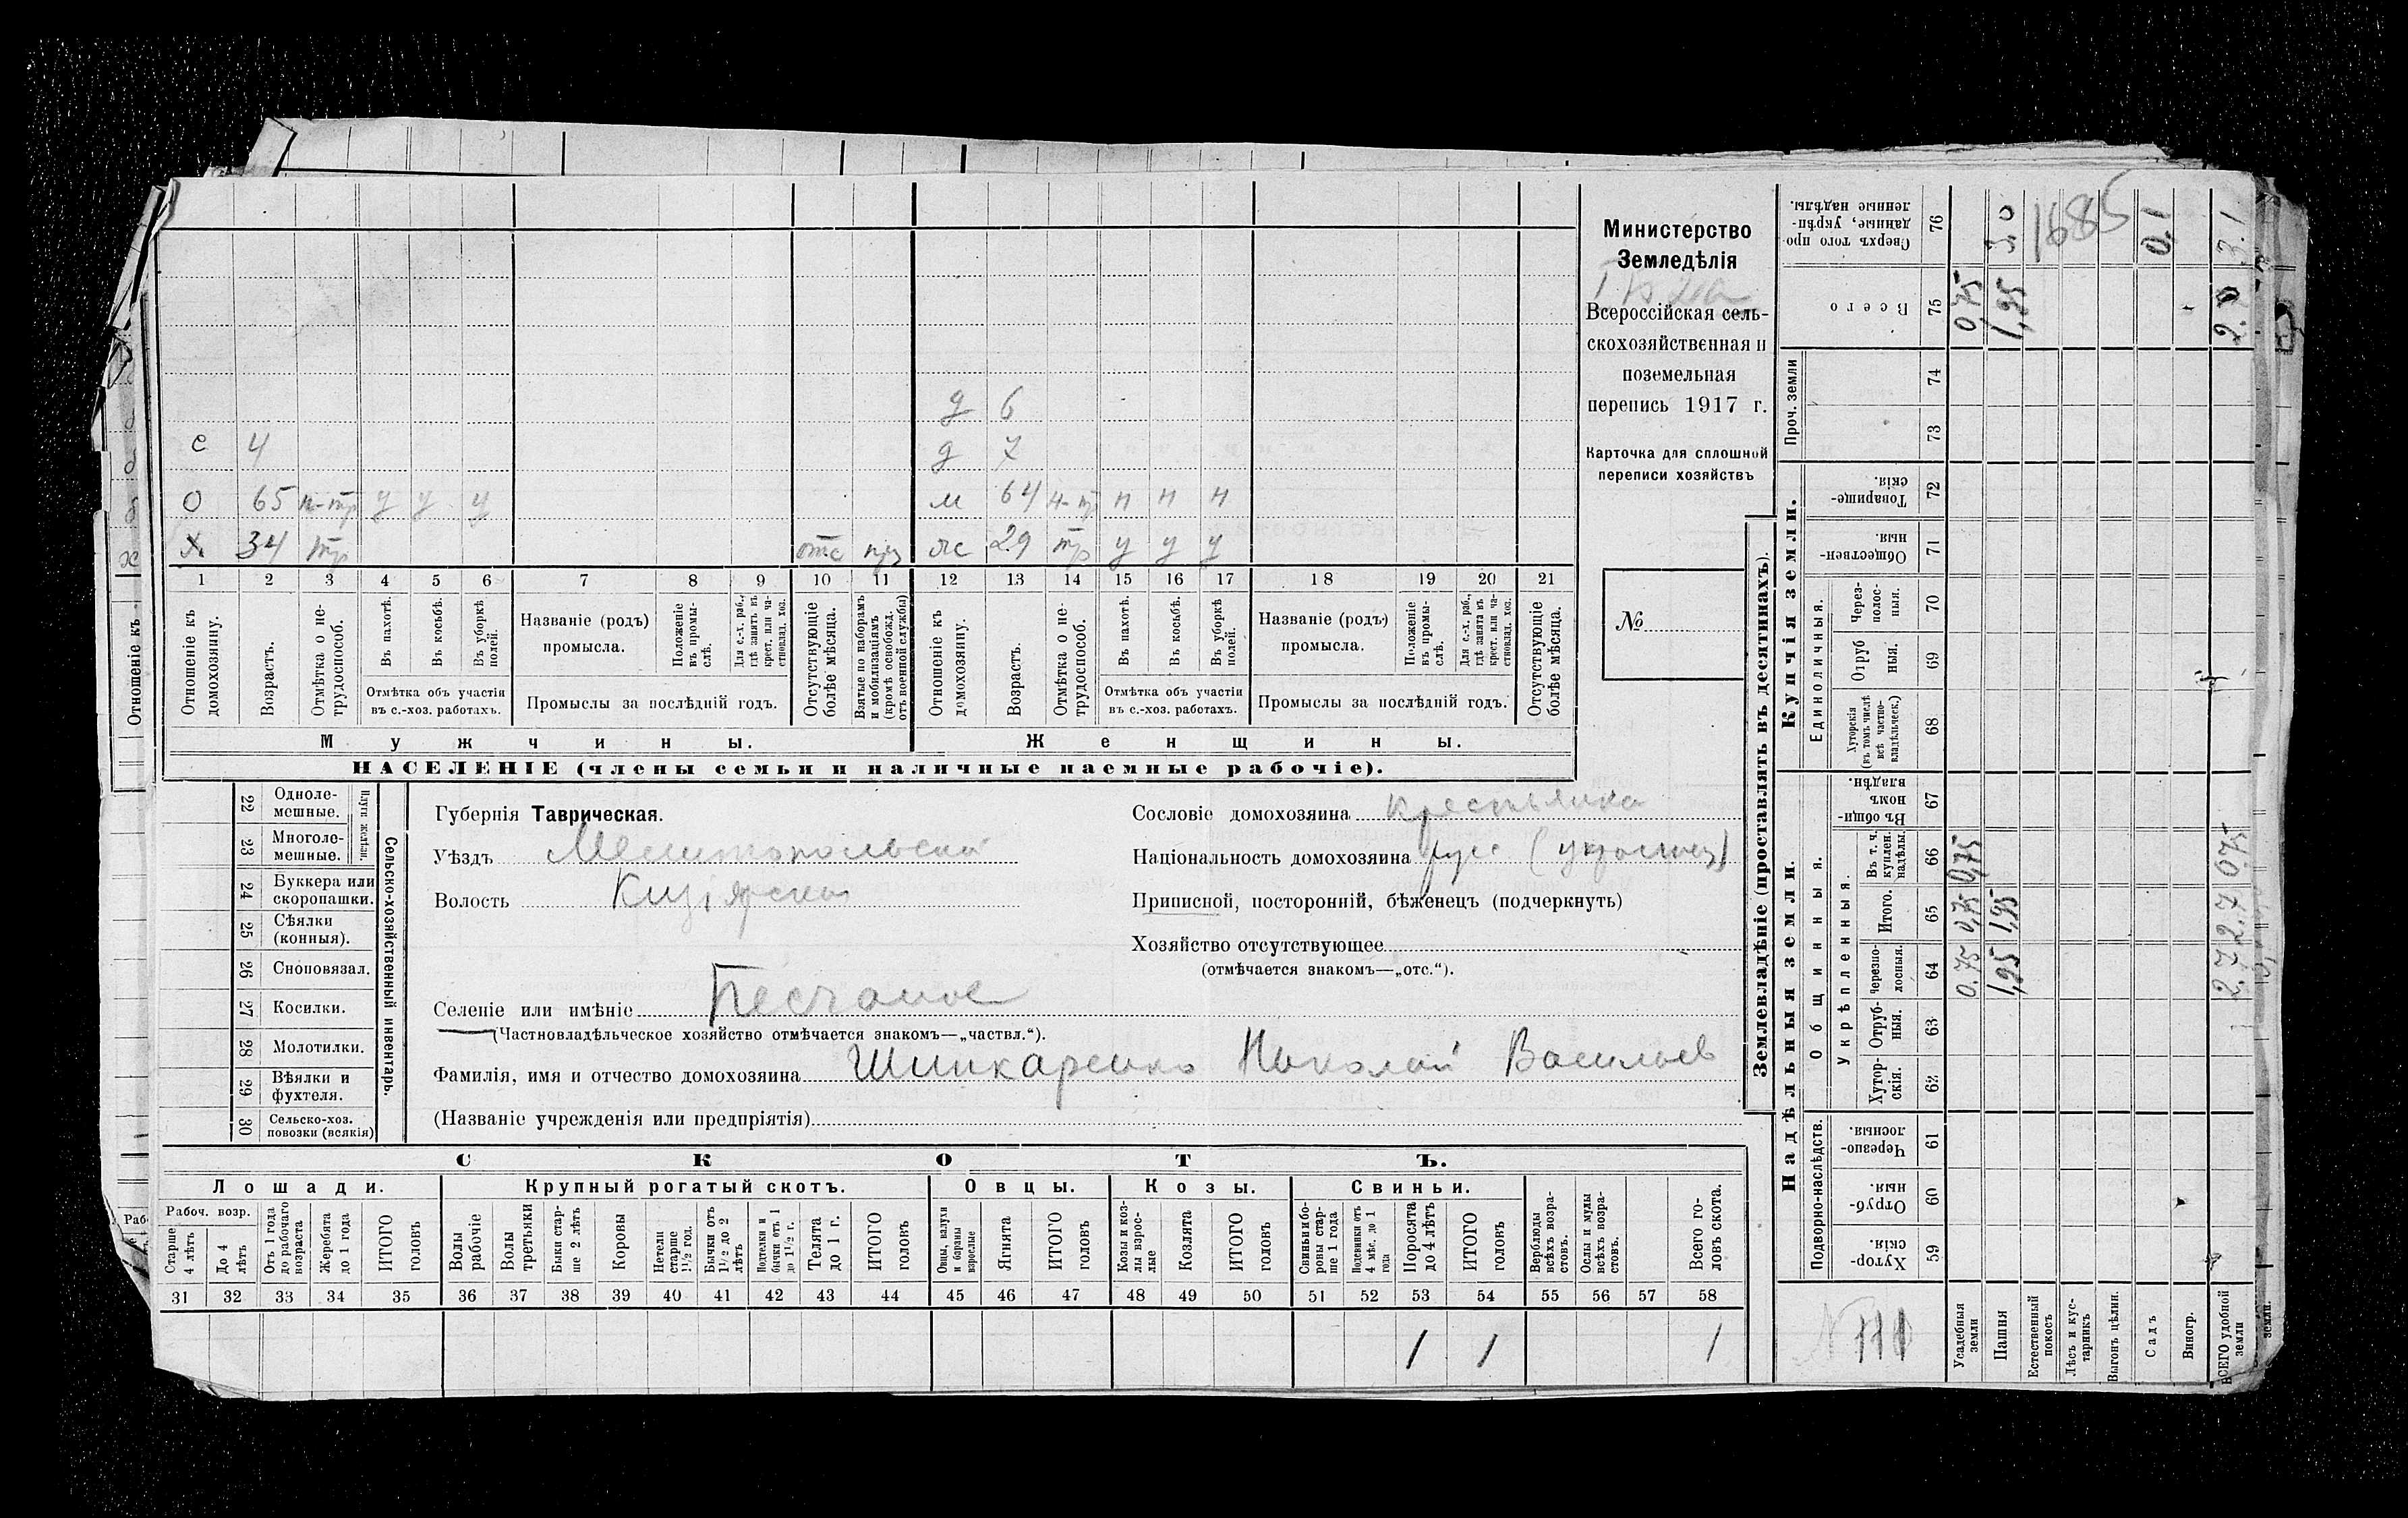 Министерство
Земледѣлія
Всероссійская сель-
скохозяйственная и
поземельная
перепись 1917 г.
Карточка для сплошной
переписи хозяйствъ
№
д 6
е 4 д 7
О 65 н-тр у у у м 64 н-тр н н н
Х 34 тр отс жс 29 тр у у у
1 2 3 4 5 6 7 8 9 10 11 12 13 14 15 16 17 18 19 20 21
Отношеніе къ домохозяину.
Возрастъ.
Отмѣтка о не-трудоспособ.
Въ пахотѣ.
Въ косьбѣ.
Въ уборкѣ полей.
Отмѣтка объ участіи
въ с.-хоз. работахъ.
Названіе (родъ)
промысла.
Положеніе въ промы-слѣ.
Для с.-х. раб., гдѣ занятъ въ крест. или ча-стновлад. хоз.
Промыслы за послѣдній годъ.
Отсутствующіе болѣе мѣсяца.
Взятые по наборамъ и мобилизаціямъ (кромѣ освобожд. отъ военной службы)
Отношеніе къ домохозяину.
Возрастъ.
Отмѣтка о не-трудоспособ.
Въ пахотѣ.
Въ косьбѣ.
Въ уборкѣ полей.
Отмѣтка объ участіи
въ с.-хоз. работахъ.
Названіе (родъ)
промысла.
Положеніе въ промы-слѣ.
Для с.-х. раб., гдѣ занята въ крест. или ча-стновлад. хоз.
Промыслы за послѣдній годъ.
Отсутствующіе болѣе мѣсяца.
Мужчины. Женщины.
НАСЕЛЕНІЕ (члены семьи и наличные наемные рабочіе).
Отношеніе къ
22 Одноле-мешные.
23 Многоле-мешные.
Плуги желѣзн.
24 Буккера или скоропашки.
25 Сѣялки (конныя).
26 Сноповязал.
27 Косилки.
28 Молотилки.
29 Вѣялки и фухтеля.
30 Сельско-хоз. повозки (всякія)
Сельско-хозяйственный инвентарь.
Губернія Таврическая.
Уѣздъ Мелитопольскій
Волость Кизіярская
Сословіе домохозяина крестьянка
Національность домохозяина рус (украинец)
Приписной, посторонній, бѣженецъ (подчеркнуть)
Хозяйство отсутствующее
(отмѣчается знакомъ—„отс.“).
Селеніе или имѣніе Песчаное
(Частновладѣльческое хозяйство отмѣчается знакомъ—„частвл.“).
Фамилія, имя и отчество домохозяина Шинкаренко Николай Васильев
(Названіе учрежденія или предпріятія)
СКОТЪ.
Лошади. Крупный рогатый скотъ. Овцы. Козы. Свиньи.
Рабоч. возр.
Старше 4 лѣтъ
До 4 лѣтъ
Отъ 1 года до рабочаго возраста
Жеребята до 1 года
ИТОГО головъ
Волы рабочіе
Волы третьяки
Быки стар-ше 2 лѣтъ
Коровы
Нетели старше 1½ год.
Бычки отъ 1½ до 2 лѣтъ
Подтелки и бычки отъ 1 до 1½ г.
Телята до 1 г.
ИТОГО головъ
Овцы, валухи и бараны взрослые
Ягнята
ИТОГО головъ
Козы и коз-лы взрос-лые
Козлята
ИТОГО головъ
Свиньи и бо-ровы стар-ше 1 года
Подсвинки отъ 4 мѣс. до 1 года
Поросята до 4 лѣтъ
ИТОГО головъ
Верблюды всѣхъ возра-стовъ.
Ослы и мулы всѣхъ возра-стовъ.
Всего го-ловъ скота.
31 32 33 34 35 36 37 38 39 40 41 42 43 44 45 46 47 48 49 50 51 52 53 54 55 56 57 58
1 1 1
Землевладѣніе (проставлять въ десятинахъ).
Купчія земли.
Надѣльныя земли.
Проч. земли
Единоличныя.
Общинныя.
Укрѣпленныя.
Подворно-наслѣдств.
Сверхъ того про-данные, укрѣп-ленные надѣлы. 76
Всего 75
74
73
Товарище-скія. 72
Обществен-ныя. 71
Через-полос-ныя. 70
Отруб ныя. 69
Хуторскія (въ томъ числѣ всѣ частно-владѣльческ.) 68
Въ общин-номъ владѣн. 67
Въ т. ч. куплен. надѣлы. 66
Итого. 65
Черезпо-лосныя. 64
Отруб-ныя. 63
Хутор-скія. 62
Черезпо-лосныя. 61
Отруб-ныя. 60
Хутор-скія. 59
Усадебныя земли 0.75 0,75 0,75 0,75
Пашня 1,95 1,95 1,95 3.0
1685
Естественный покосъ
Лѣсъ и кус-тарникъ
Выгонъ цѣлин.
Садъ 0,1
Виногр.
ВСЕГО удобной земли 2.7 2.7 0,75 3.1